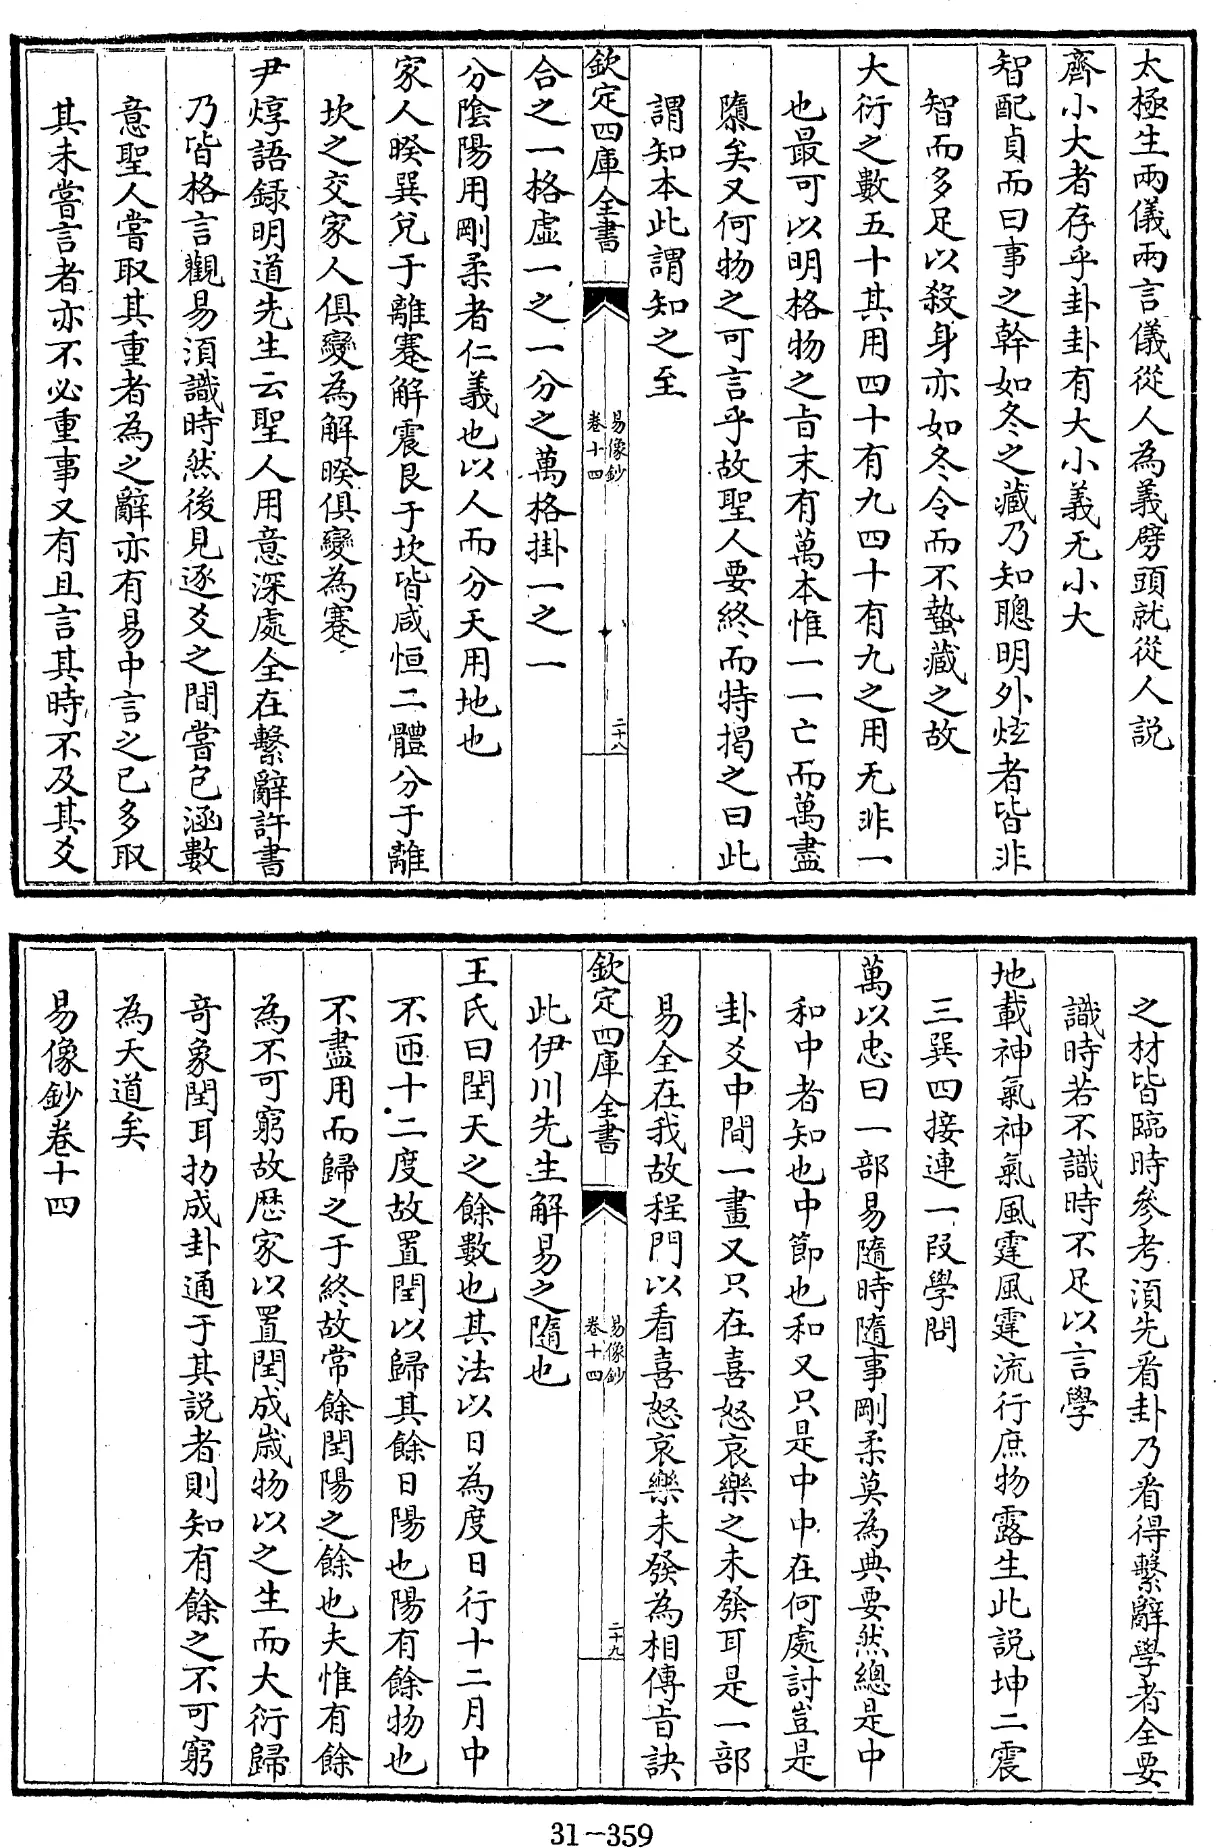 太極生兩儀兩言儀從人為義劈頭就從人説
齊小大者存乎卦卦有大小義无小大
智配貞而曰事之幹如冬之藏乃知聰明外炫者皆非
智而多足以殺身亦如冬令而不蟄藏之故
大衍之數五十其用四十有九四十有九之用无非一
也最可以明格物之旨末有萬本惟一一亡而萬盡
隳矣又何物之可言乎故聖人要終而特揭之曰此
謂知本此謂知之至
欽定四庫全書
易像鈔
卷十四
二十八
合之一格虛一之一分之萬格掛一之一
分陰陽用剛柔者仁義也以人而分天用地也
家人暌巽兌于離蹇解震艮于坎皆咸恒二體分于離
坎之交家人俱變為解暌俱變為蹇
尹焞語録明道先生云聖人用意深處全在繫辭詩書
乃皆格言觀易須識時然後見逐爻之間嘗包涵數
意聖人嘗取其重者為之辭亦有易中言之已多取
其未嘗言者亦不必重事又有且言其時不及其爻
之材皆臨時參考須先看卦乃看得繫辭學者全要
識時若不識時不足以言學
地載神氣神氣風霆風霆流行庶物露生此説坤二震
三巽四接連一段學問
萬以忠曰一部易隨時隨事剛柔莫為典要然總是中
和中者知也中節也和又只是中中在何處討豈是
卦爻中間一畫又只在喜怒哀樂之未發耳是一部
易全在我故程門以看喜怒哀樂未發為相傳旨訣
欽定四庫全書
易像鈔
卷十四
二十九
此伊川先生解易之隨也
王氏曰閏天之餘數也其法以日為度日行十二月中
不匝十二度故置閏以歸其餘日陽也陽有餘物也
不盡用而歸之于終故常餘閏陽之餘也夫惟有餘
為不可窮故歴家以置閏成歲物以之生而大衍歸
竒象閏耳扐成卦通于其説者則知有餘之不可窮
為天道矣
易像鈔卷十四
31-359